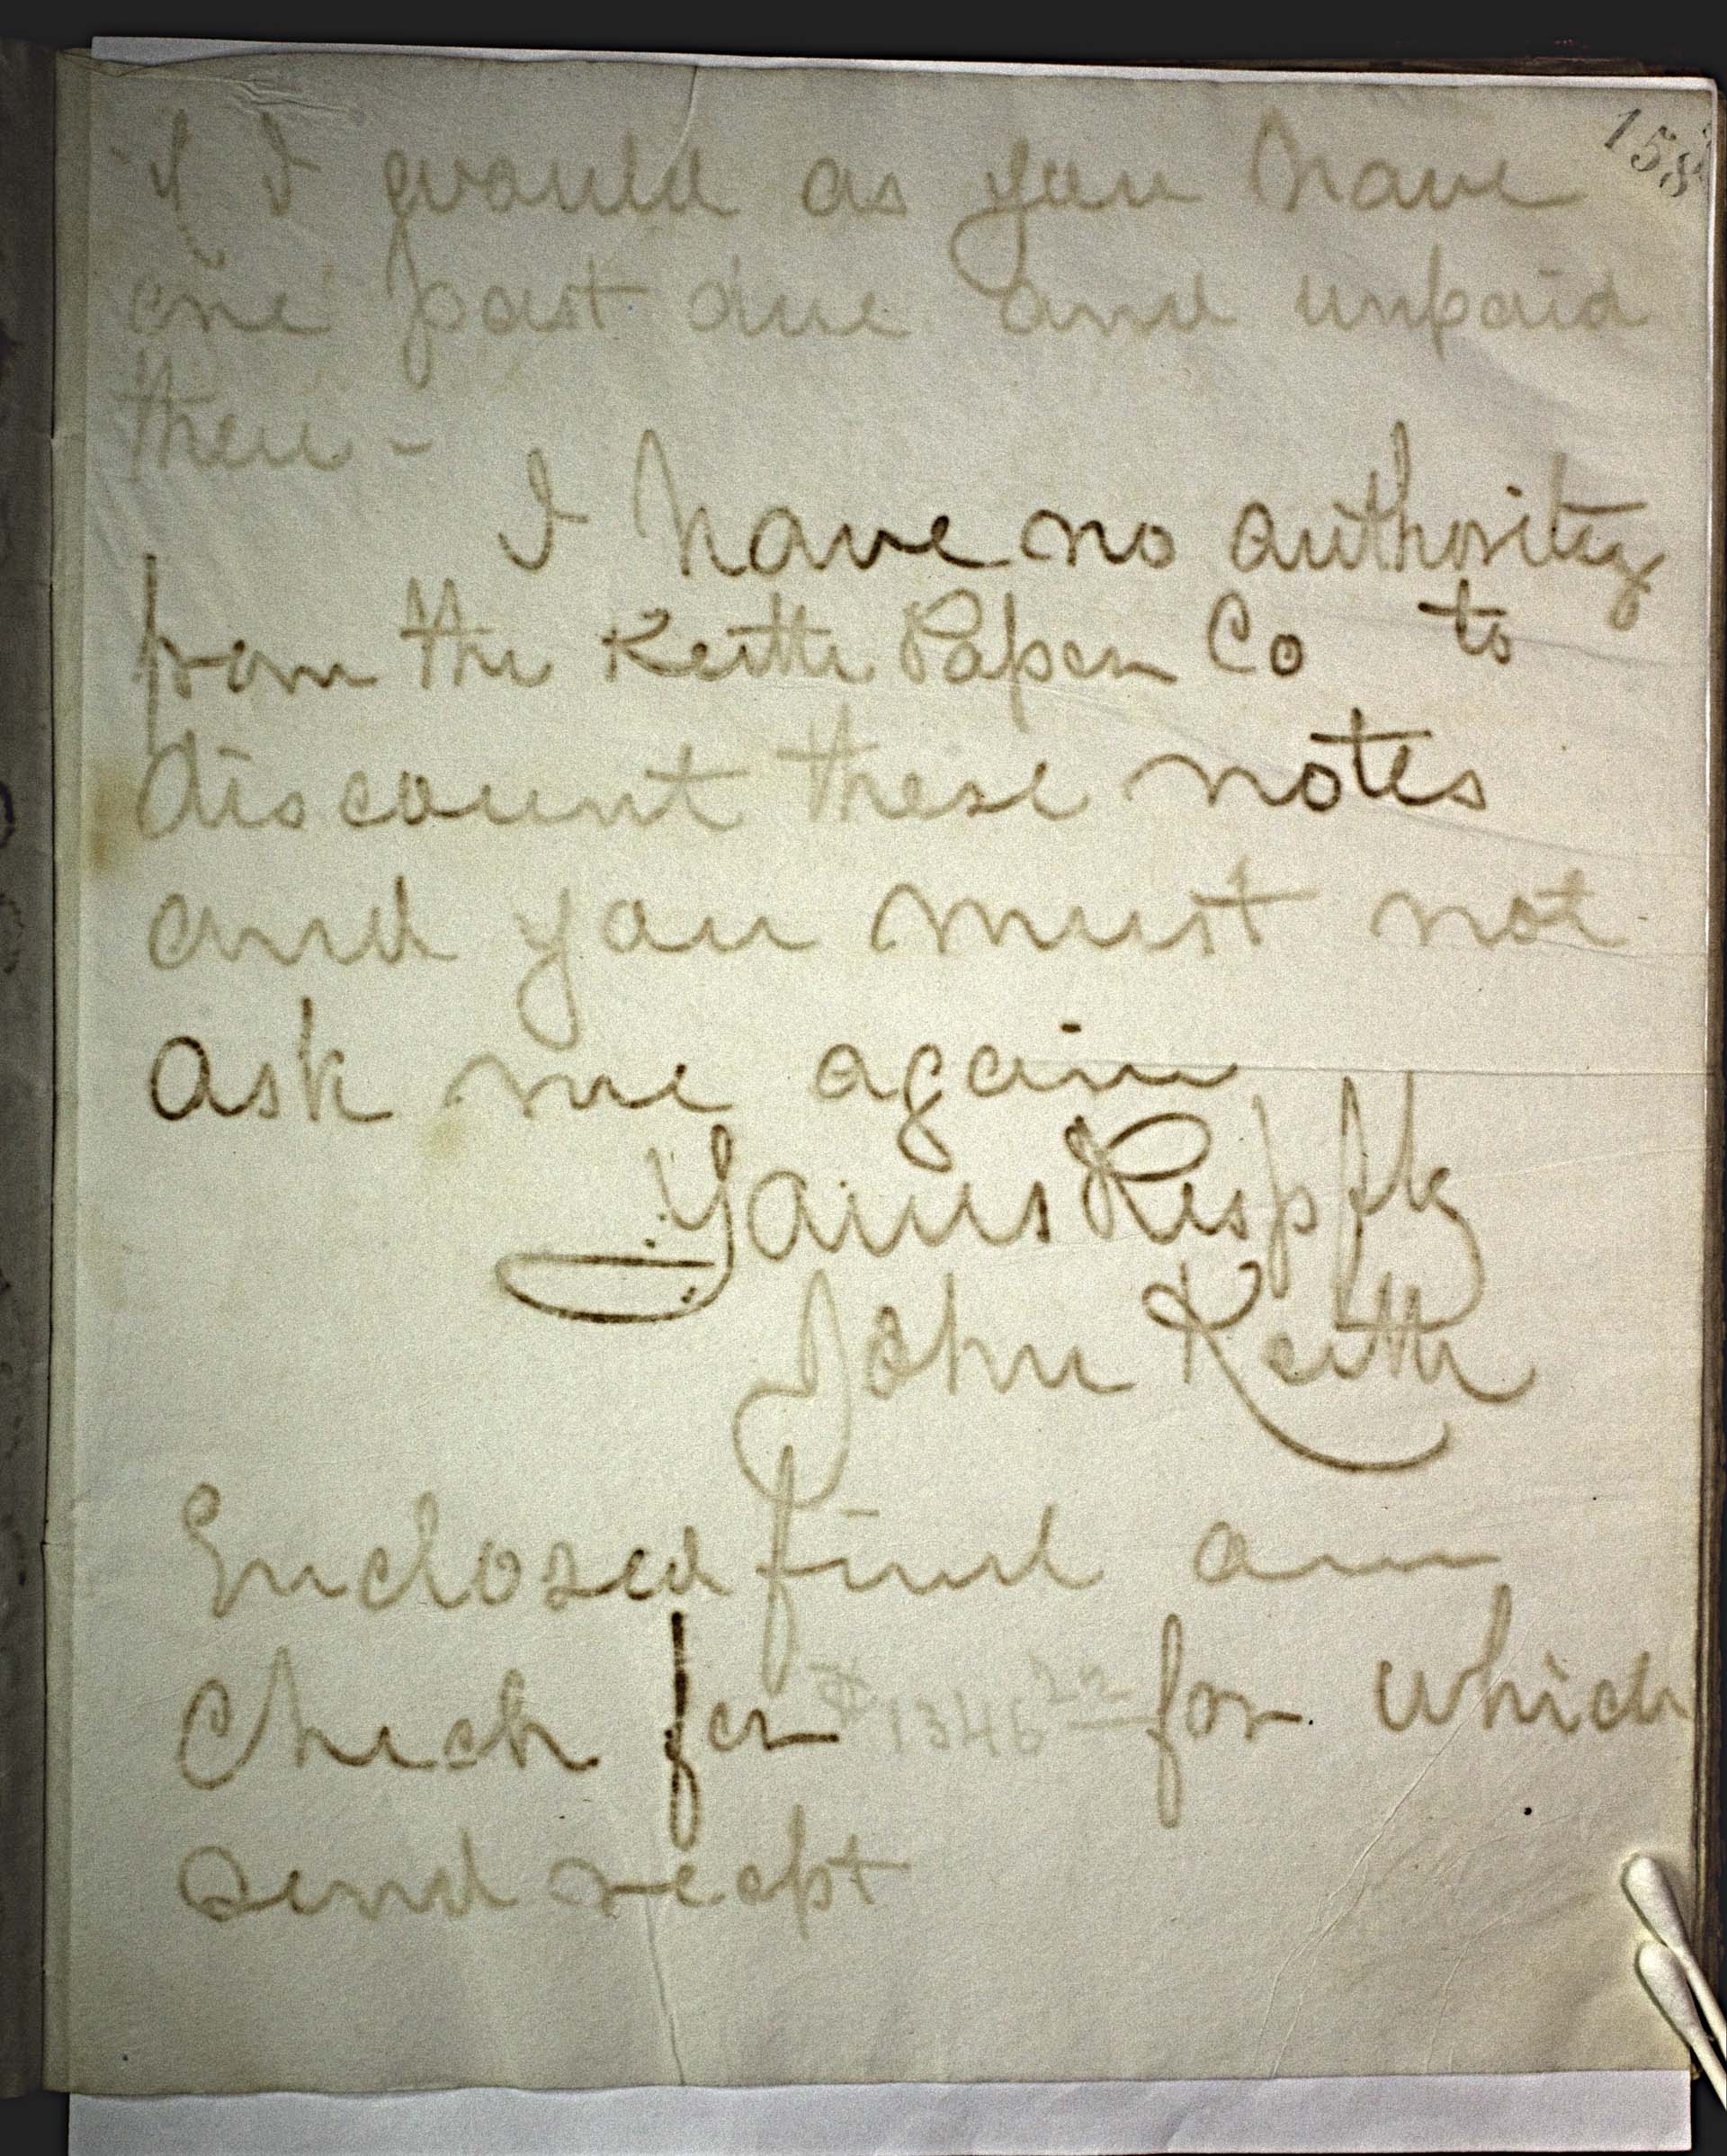 158
if I would as you have
one past due and unpaid
then -
I have no authority
from the Keith Paper Co to
discount these notes
and you must not
ask me again
Yours Respfly
John Keith
Enclosed find our
Check for $1346 22 for which
send recpt